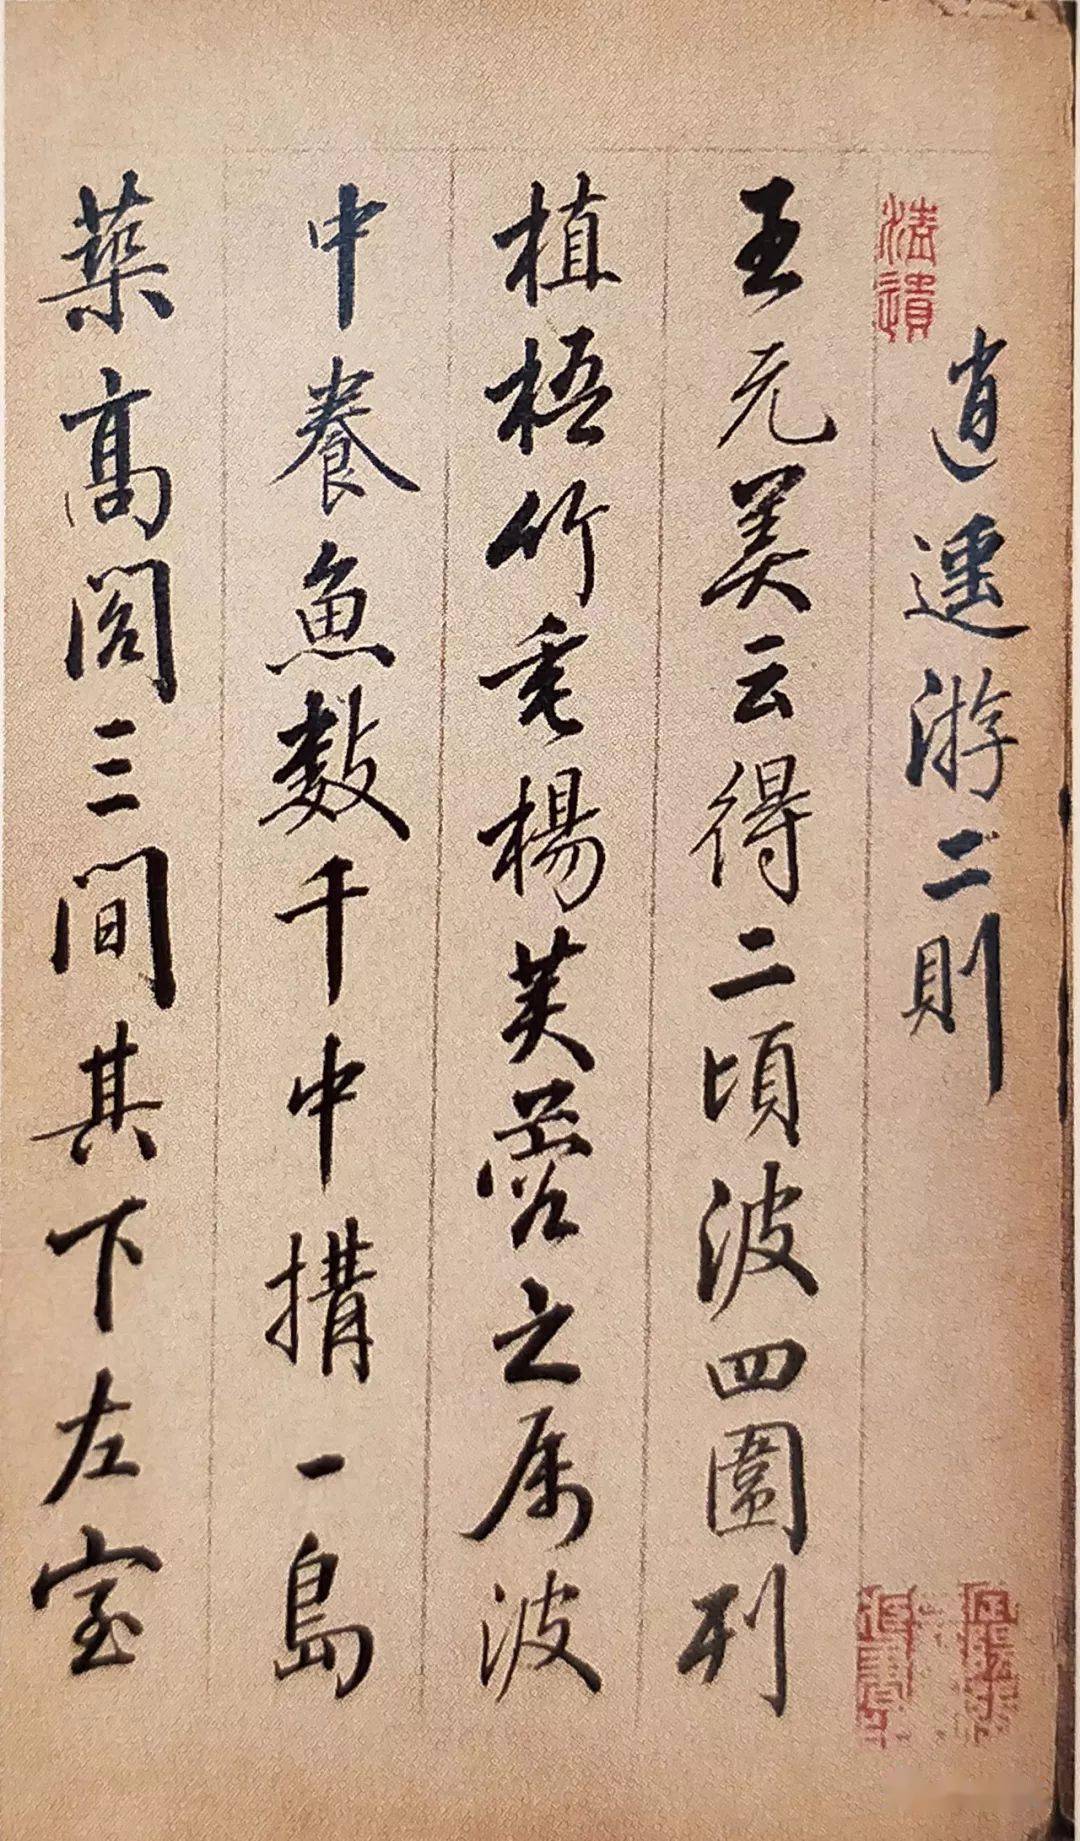 逍遥游二則
王元美云得二頃波四圍列
植梧竹垂楊芙蓉之属波
中養魚數千中搆一島
築高閣三間其下左室